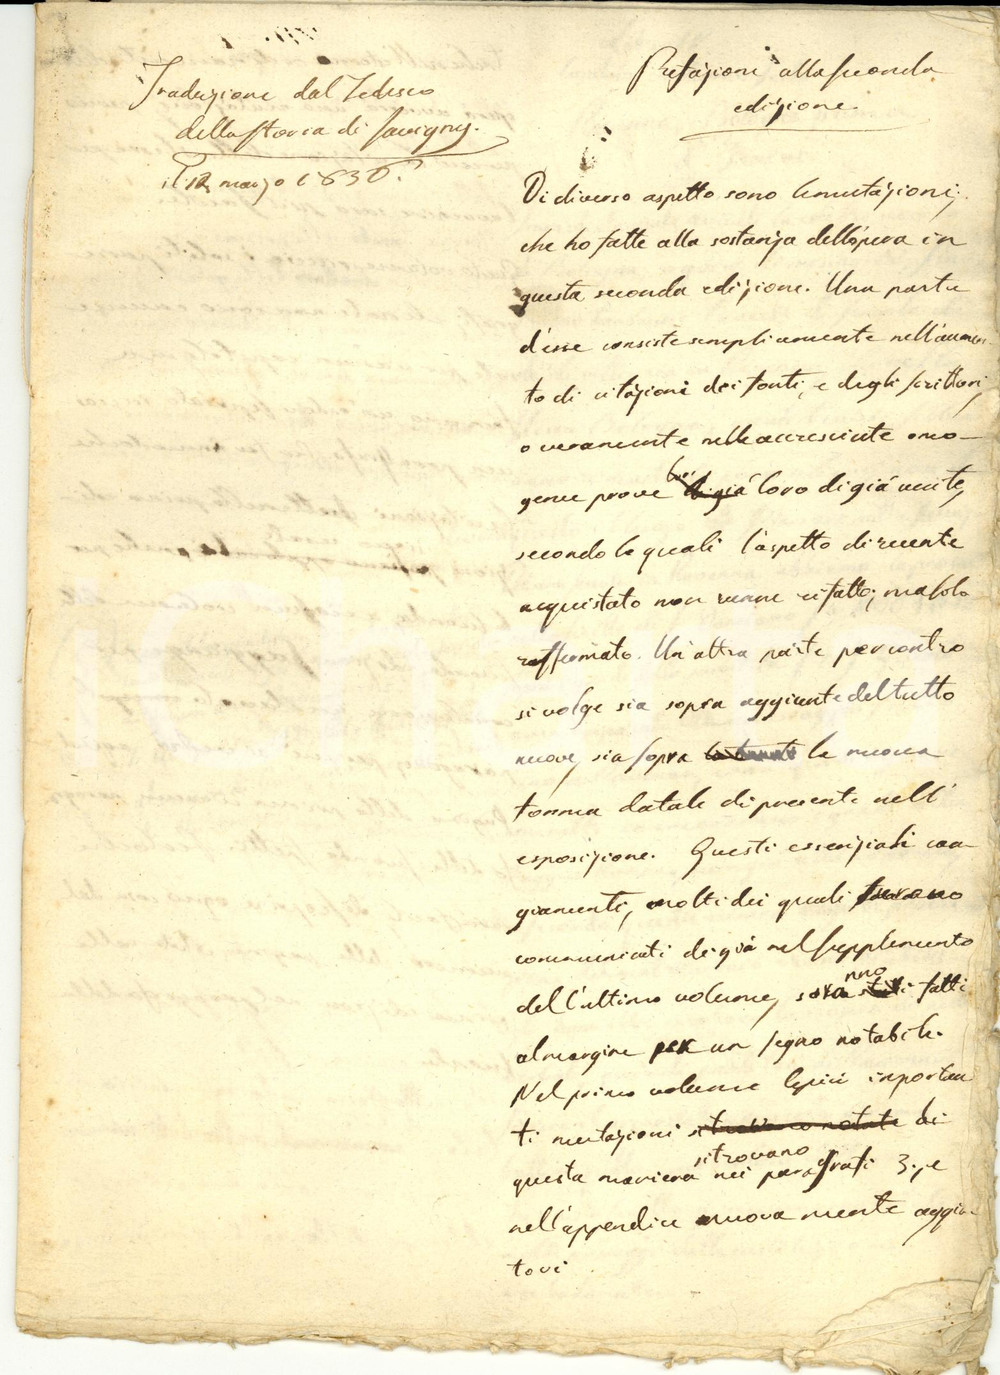 Traduzione dal Tedesco
della Storia di Savigny.
il 12 marzo 1836.
Prefazione alla seconda
edizione.
Di diverso aspetto sono le mutazioni,
che ho fatte alla sostanza dell'opera in
questa seconda edizione. Una parte
d'esse consiste semplicemente nell'aumen-
to di citazioni dei fonti, e degli scrittori,
o veramente nelle accresciute omo-
genee prove di già loro di già unite,
secondo le quali l'aspetto
acquistato non venne rifatto; ma solo
raffermato. Un'altra parte per contro
si volge sia sopra aggiunte del tutto
nuove, sia sopra la nuova
forma datale di presente nell'
esposizione. Questi essenziali can-
giamenti, molti dei quali furono
comunicati di già nel supplemento
dell'ultimo volume, saranno fatti
al margine per un segno notabile.
Nel primo volume le più importan-
ti mutazioni si trovano notate di
questa maniera si trovano nei paragrafi 3. e
nell'appendice nuovamente aggiun-
tovi